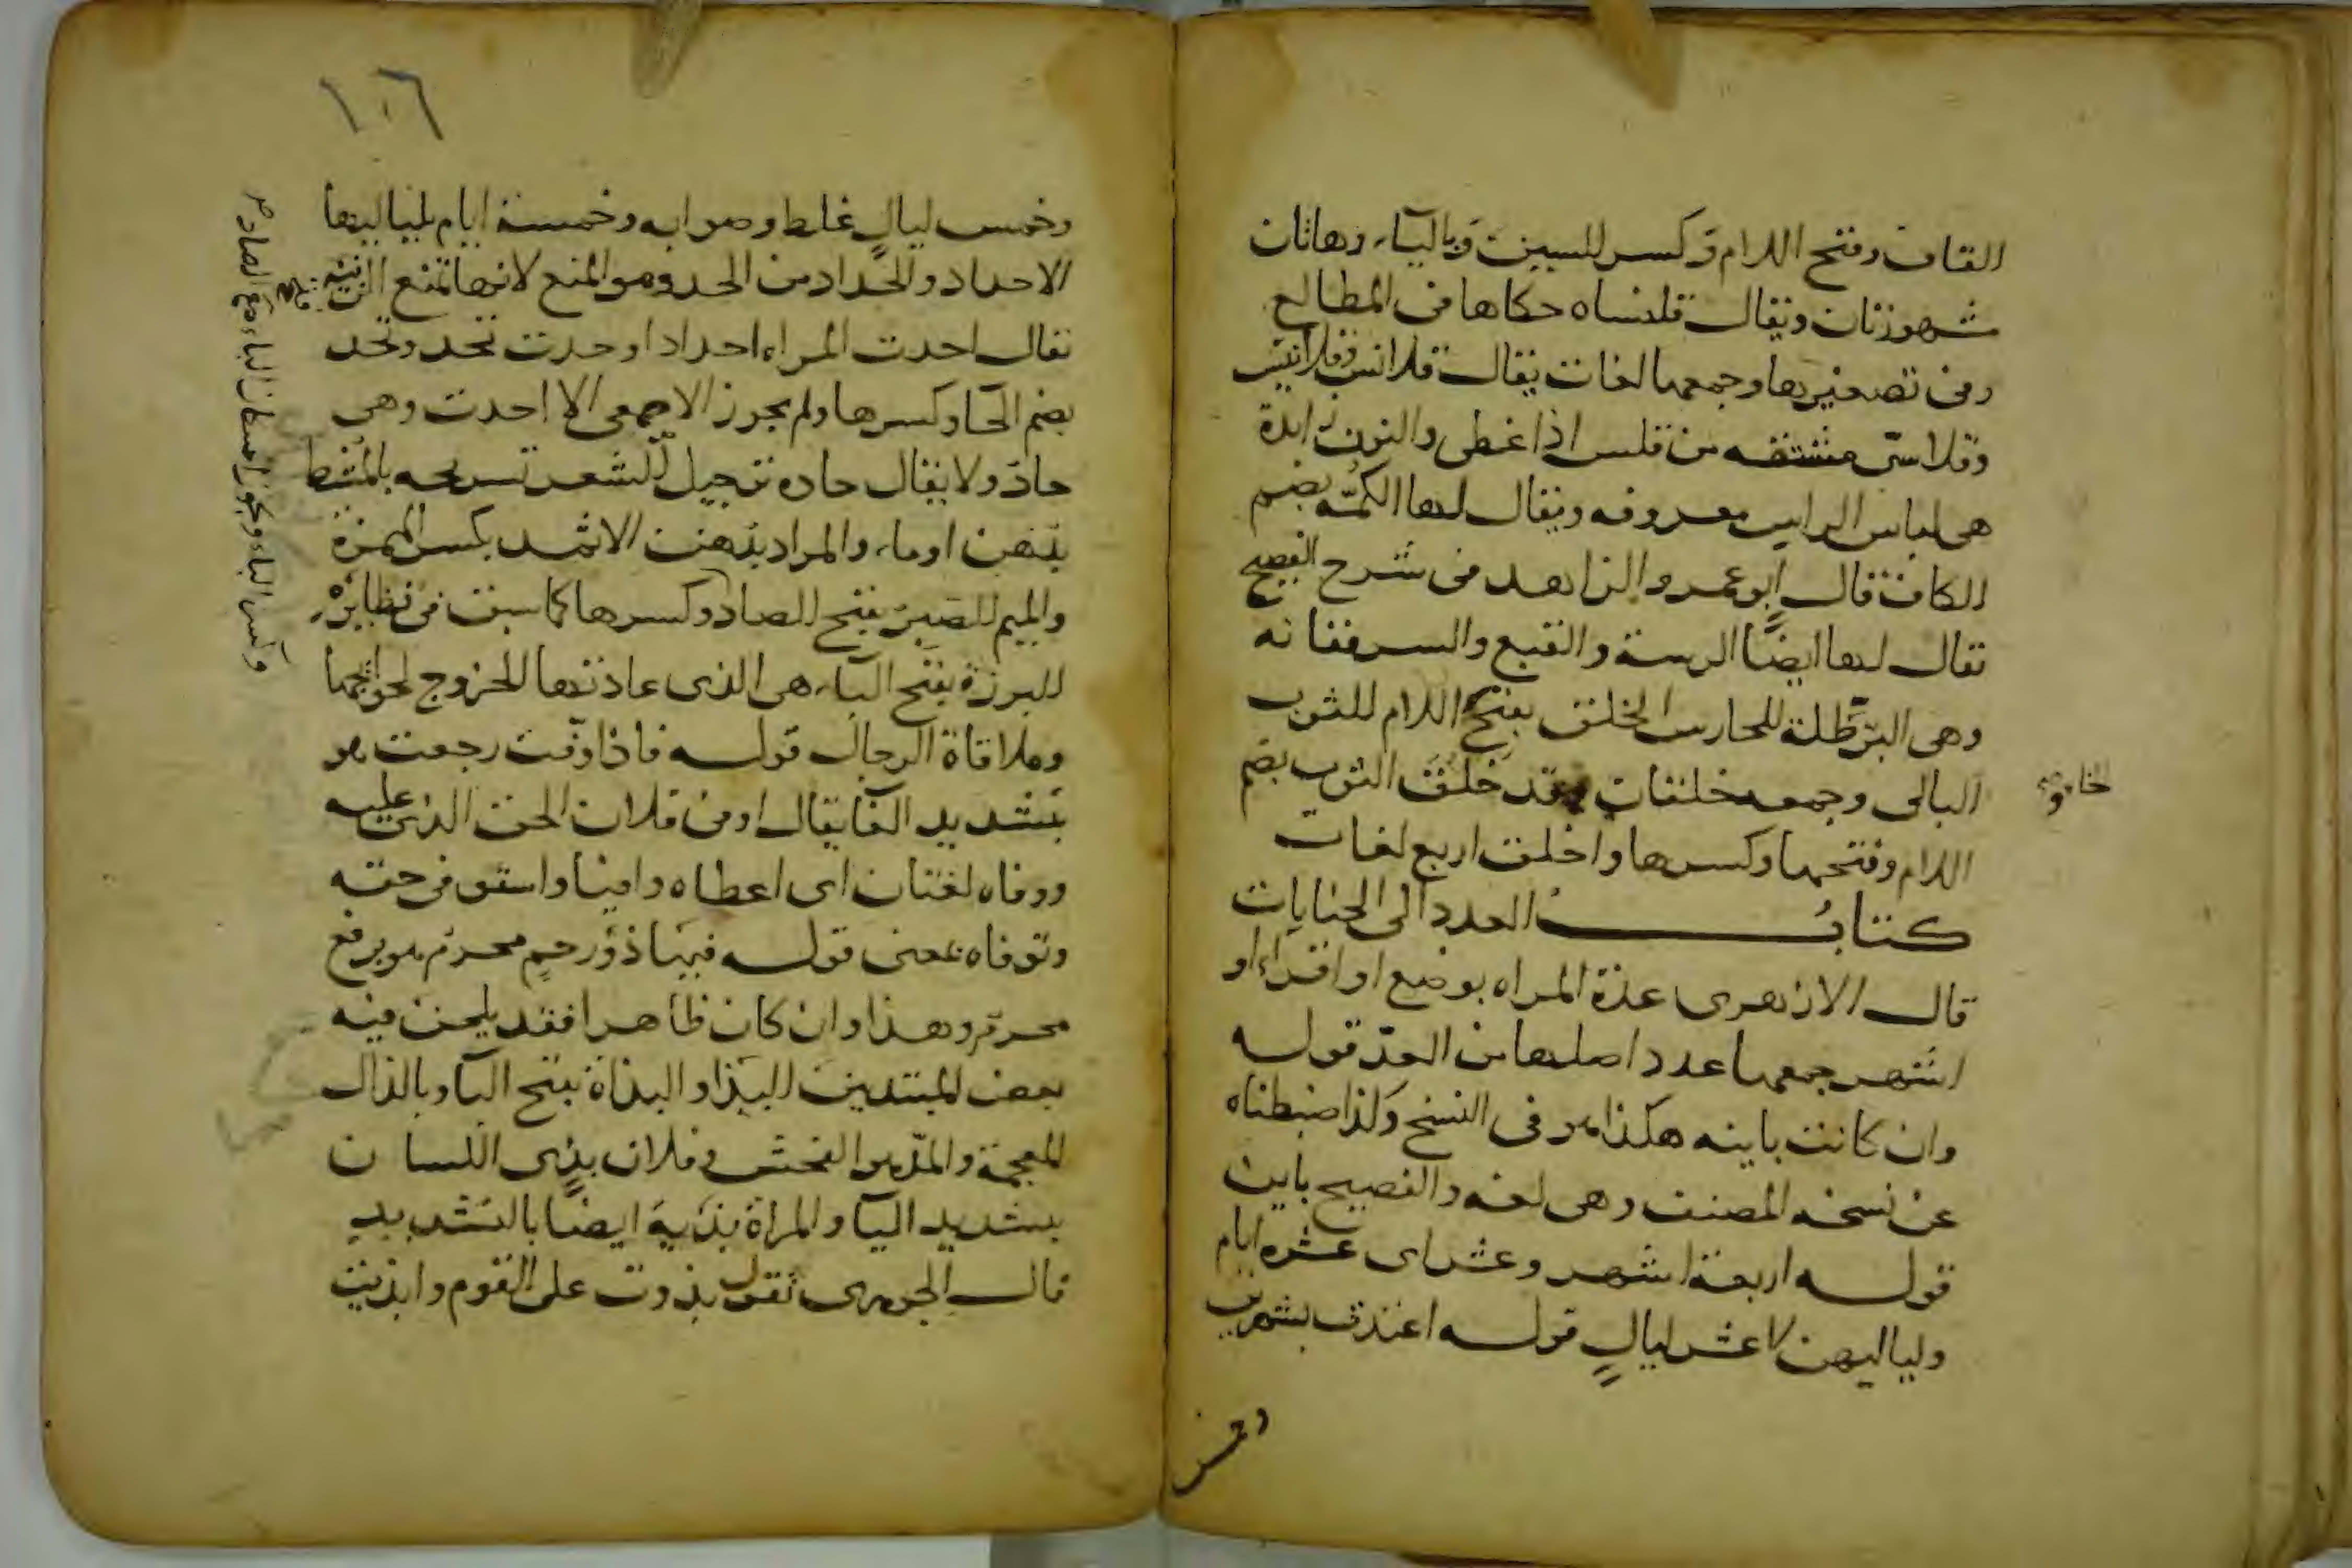 القاف وفتح اللام وكسر السين وبالياء وهاتان
مشهورتان ويقال قلنساه حكاها في المطالع
وفي تصغيرها وجمعها لغات يقال قلانس وقلانيس
وقلاسيّ مشتقه من قلس اذا غطى والنون زايدة
هي لباس الراس معروفه ويقال لها الكُمّه بضم
الكاف قال ابو عمر والزاهد في شرح الفصيح
يقال لها ايضًا الرسة والقبع والسرفقانه
وهي البرَّطلة للحارس الخلق بفتح اللام للثوب
البالي وجمعه خلقات وقد خلق الثوب بضم
الخاء
اللام وفتحها وكسرها واخلق اربع لغات
كتابُ العدد الى الجنايات
قال الازهرى عدة المراه بوضع او اقراء او
اشهر جمعها عدد اصلها من العدّ قوله
وان كانت باينه هكذا هو في النسخ وكذا ضبطناه
عن نسخه المصنف وهي لغه والفصيح باين
قوله اربعة اشهر وعشر اى عشره ايام
ولياليهن لا عشر ليالٍ قوله اعتدت بشهرين
وخمس
١٠٦
وخمس ليالٍ غلط وصوابه وخمسة ايام بلياليها
الاحداد والحداد من الحد وهو المنع لانها تمنع الزينه
يقال احدت المراه احدادا وحدت تحد وتحد
بضم الحا وكسرها ولم يجوز الاصمعى الا احدت وهي
حاد ولا يقال حاده ترجيل الشعر تسريحه بالمشط
بدهن او ماء والمراد بدهن الاثمد بكسر الهمزة
والميم الصبر بفتح الصاد وكسرها كما سبق في نظايره
البرزة بفتح الباء هي الذى عادتها الخروج لحوائجها
وملاقاة الرجال قوله فاذا وفّت رجعت هو
بتشديد الفا يقال اوفى فلان الحق الذى عليه
ووفاه لغتان اى اعطاه وافيا واستوفى حقه
وتوفاه بمعنى قوله فيها ذو رحمٍ محرم هو برفع
محرم وهذا وان كان ظاهرا فقد يلحن فيه
بعض المبتدين البذا والبذاة بفتح البا وبالذال
المعجمة والمد هو الفحش وفلان بذى اللسان
بتشديد اليا والمراة بذية ايضًا بالتشديد
قال الجوهرى تقول بذوت على القوم وابذيت
وكسر الباء ويجوز اسكان الباء مع الصاد